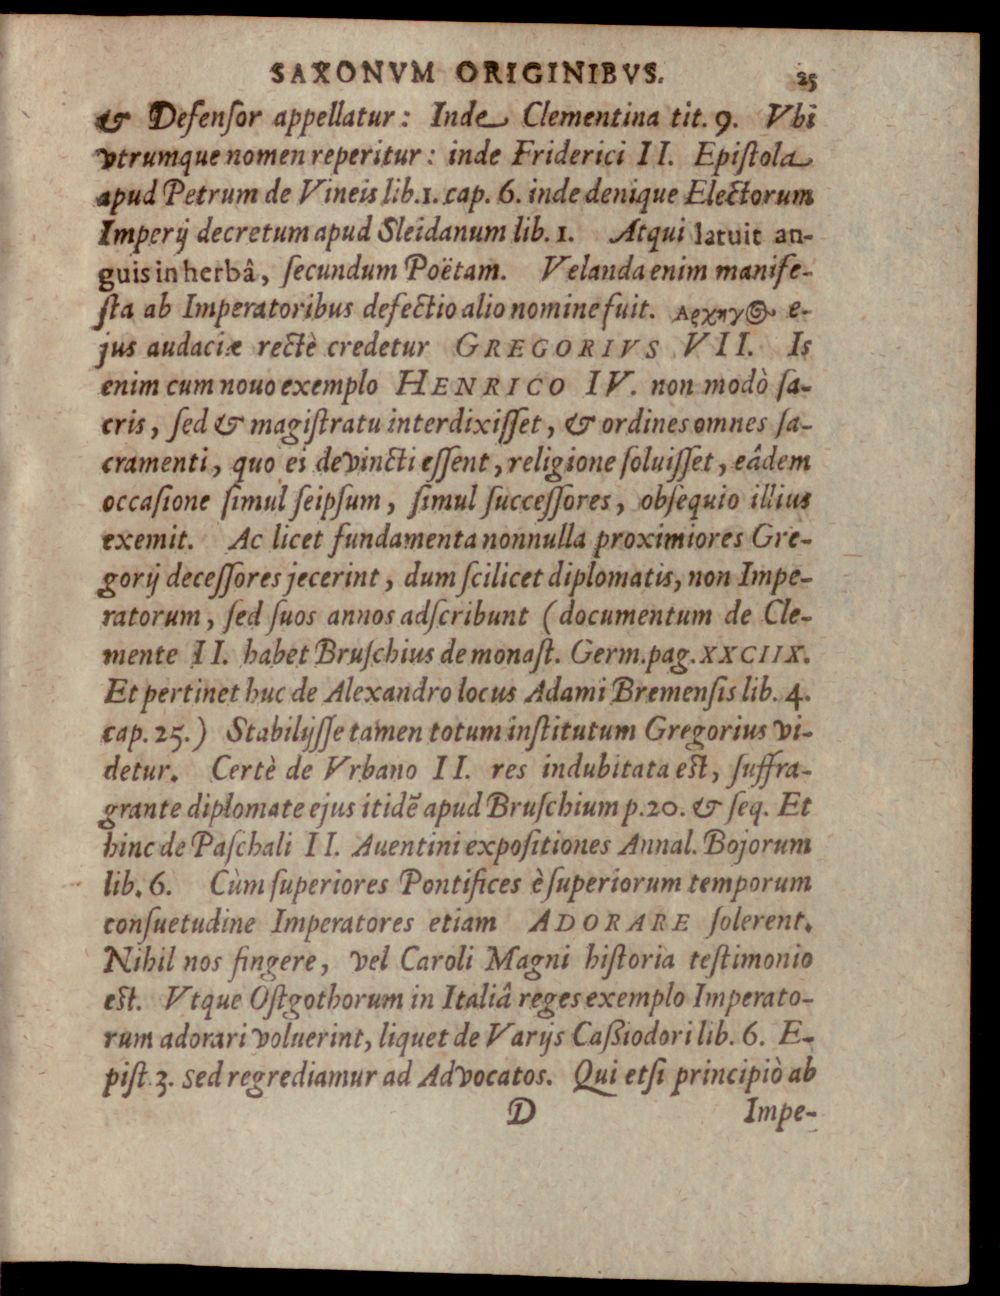 SAXONVM ORIGINIBVS. 25
& Defenſor appellatur: Inde Clementina tit. 9. Vbi
vtrumque nomen reperitur: inde Friderici II. Epiſtola
apud Petrum de Vineis lib. 1. cap. 6. inde denique Electorum
Imperij decretum apud Sleidanum lib. 1. Atqui latuit an-
guis in herbâ, ſecundum Poëtam. Velanda enim manife-
ſta ab Imperatoribus defectio alio nomine fuit. Αρχηγος e-
jus audaciæ rectè credetur GREGORIVS VII. Is
enim cum nouo exemplo HENRICO IV. non modò ſa-
cris, ſed & magiſtratu interdixiſſet, & ordines omnes ſa-
cramenti, quo ei devincti eſſent, religione ſoluiſſet, eâdem
occaſione ſimul ſeipſum, ſimul ſucceſſores, obſequio illius
exemit. Ac licet fundamenta nonnulla proximiores Gre-
gorij deceſſores jecerint, dum ſcilicet diplomatis, non Impe-
ratorum, ſed ſuos annos adſcribunt (documentum de Cle-
mente II. habet Bruſchius de monaſt. Germ. pag. XXCIIX.
Et pertinet huc de Alexandro locus Adami Bremenſis lib. 4.
cap. 25.) Stabilijſſe tamen totum inſtitutum Gregorius vi-
detur. Certè de Vrbano II. res indubitata eſt, ſuffra-
grante diplomate ejus itidē apud Bruſchium p. 20. & ſeq. Et
hinc de Paſchali II. Auentini expoſitiones Annal. Bojorum
lib. 6. Cùm ſuperiores Pontifices è ſuperiorum temporum
conſuetudine Imperatores etiam ADORARE ſolerent.
Nihil nos fingere, vel Caroli Magni hiſtoria teſtimonio
eſt. Vtque Oſtgothorum in Italiâ reges exemplo Imperato-
rum adorari voluerint, liquet de Varijs Caßiodori lib. 6. E-
piſt. 3. Sed regrediamur ad Advocatos. Qui etſi principiò ab
D Impe-